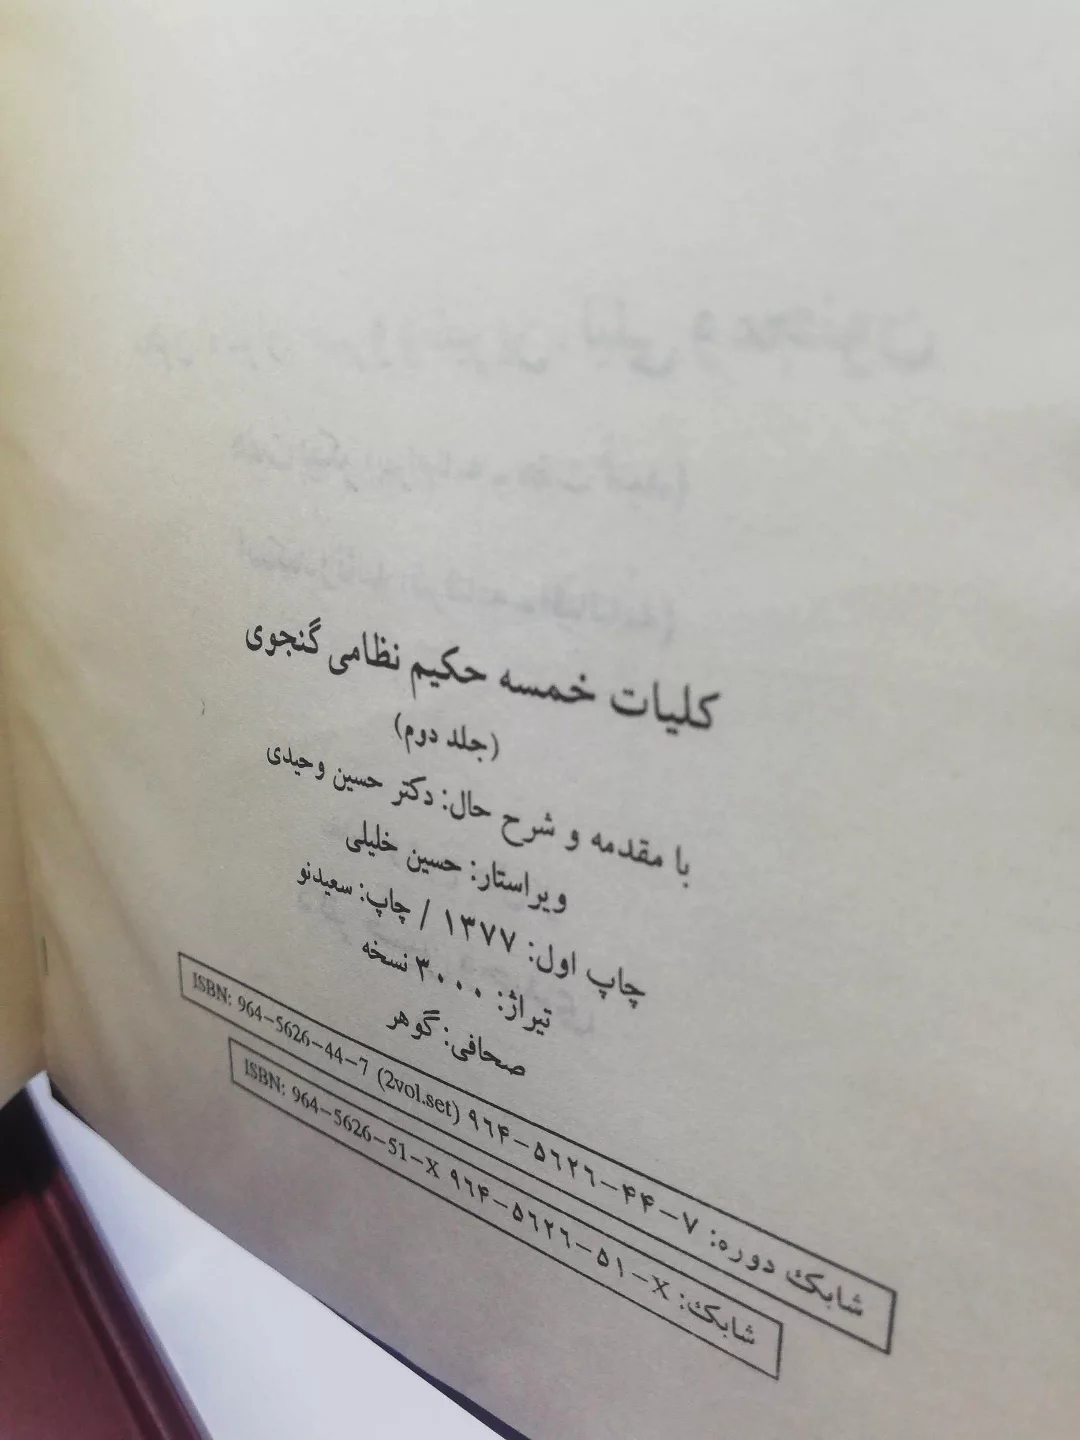 کلیات خمسه حکیم نظامی گنجوی
(جلد دوم)
با مقدمه و شرح حال: دکتر حسین وحیدی
ویراستار: حسین خلیلی
چاپ اول: ۱۳۷۷ / چاپ: سعیدنو
تیراژ: ۳۰۰۰ نسخه
صحافی: گوهر
شابک دوره: ۷-۴۴-۵۶۲۶-۹۶۴ ISBN: 964-5626-44-7 (2vol.set)
شابک: X-۵۱-۵۶۲۶-۹۶۴ ISBN: 964-5626-51-X